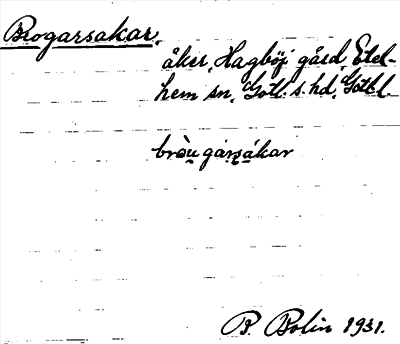 Brogarsakar,
åker, Hagböj gård, Etel-
hem sn, Gotl. s. hd, Gotl.
bròu̯gársákar
B. Bolin 1931.